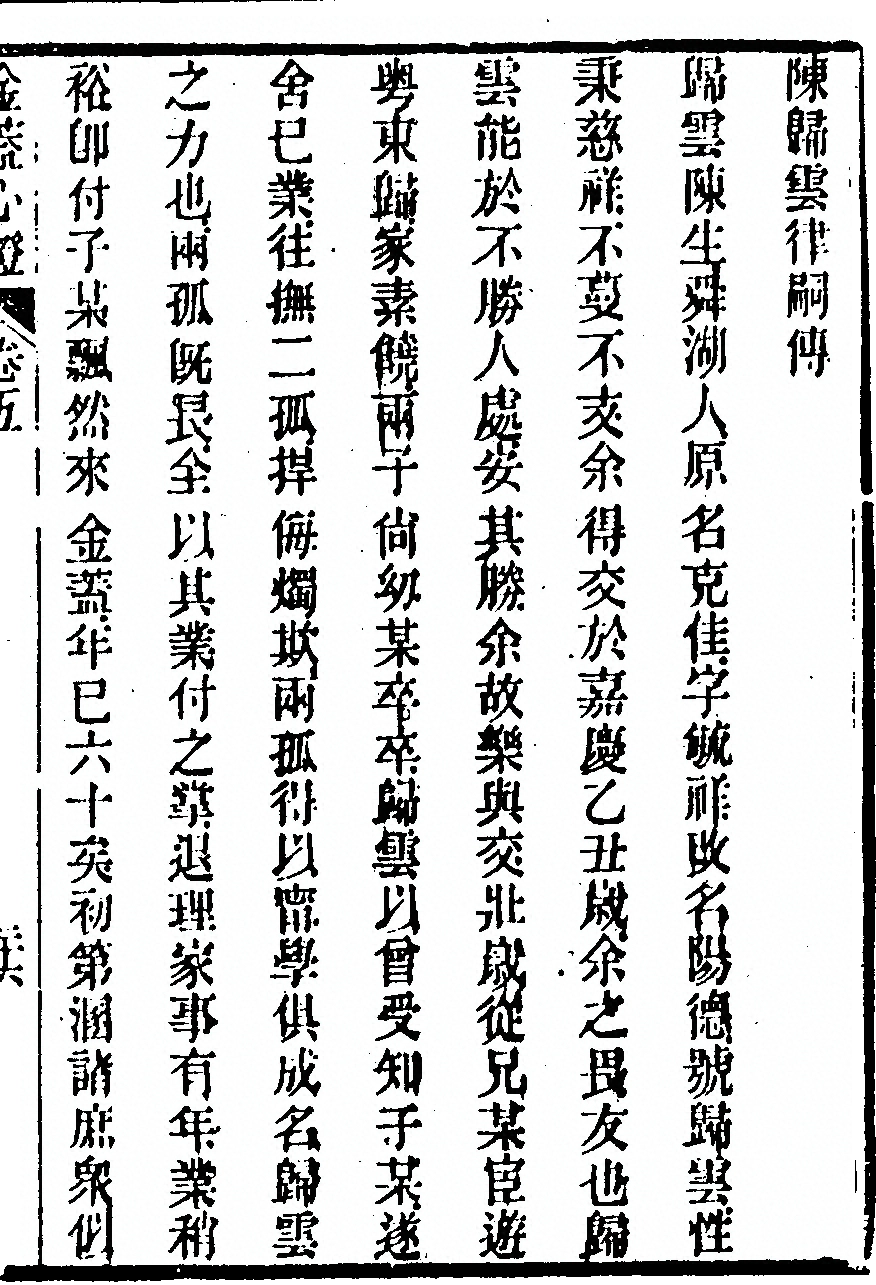 陳歸雲律嗣傳
歸雲陳生舜湖人原名克佳字毓祥改名陽德號歸雲性
秉慈祥不蔓不支余得交於嘉慶乙丑歲余之畏友也歸
雲能於不勝人處安其勝余故樂與交壯歲從兄某宦遊
粤東歸家素饒兩子尙幼某卒卒歸雲以曾受知于某遂
舍已業往撫二孤捍侮燭欺兩孤得以甯學俱成名歸雲
之力也兩孤既艮全以其業付之掌退理家事有年業稍
裕卽付子某飄然來金蓋年已六十矣初第溷諸庶衆似
金蓋心燈 卷五